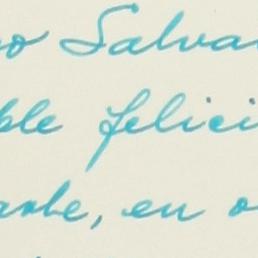 o Salva
ble felici
arle, en o